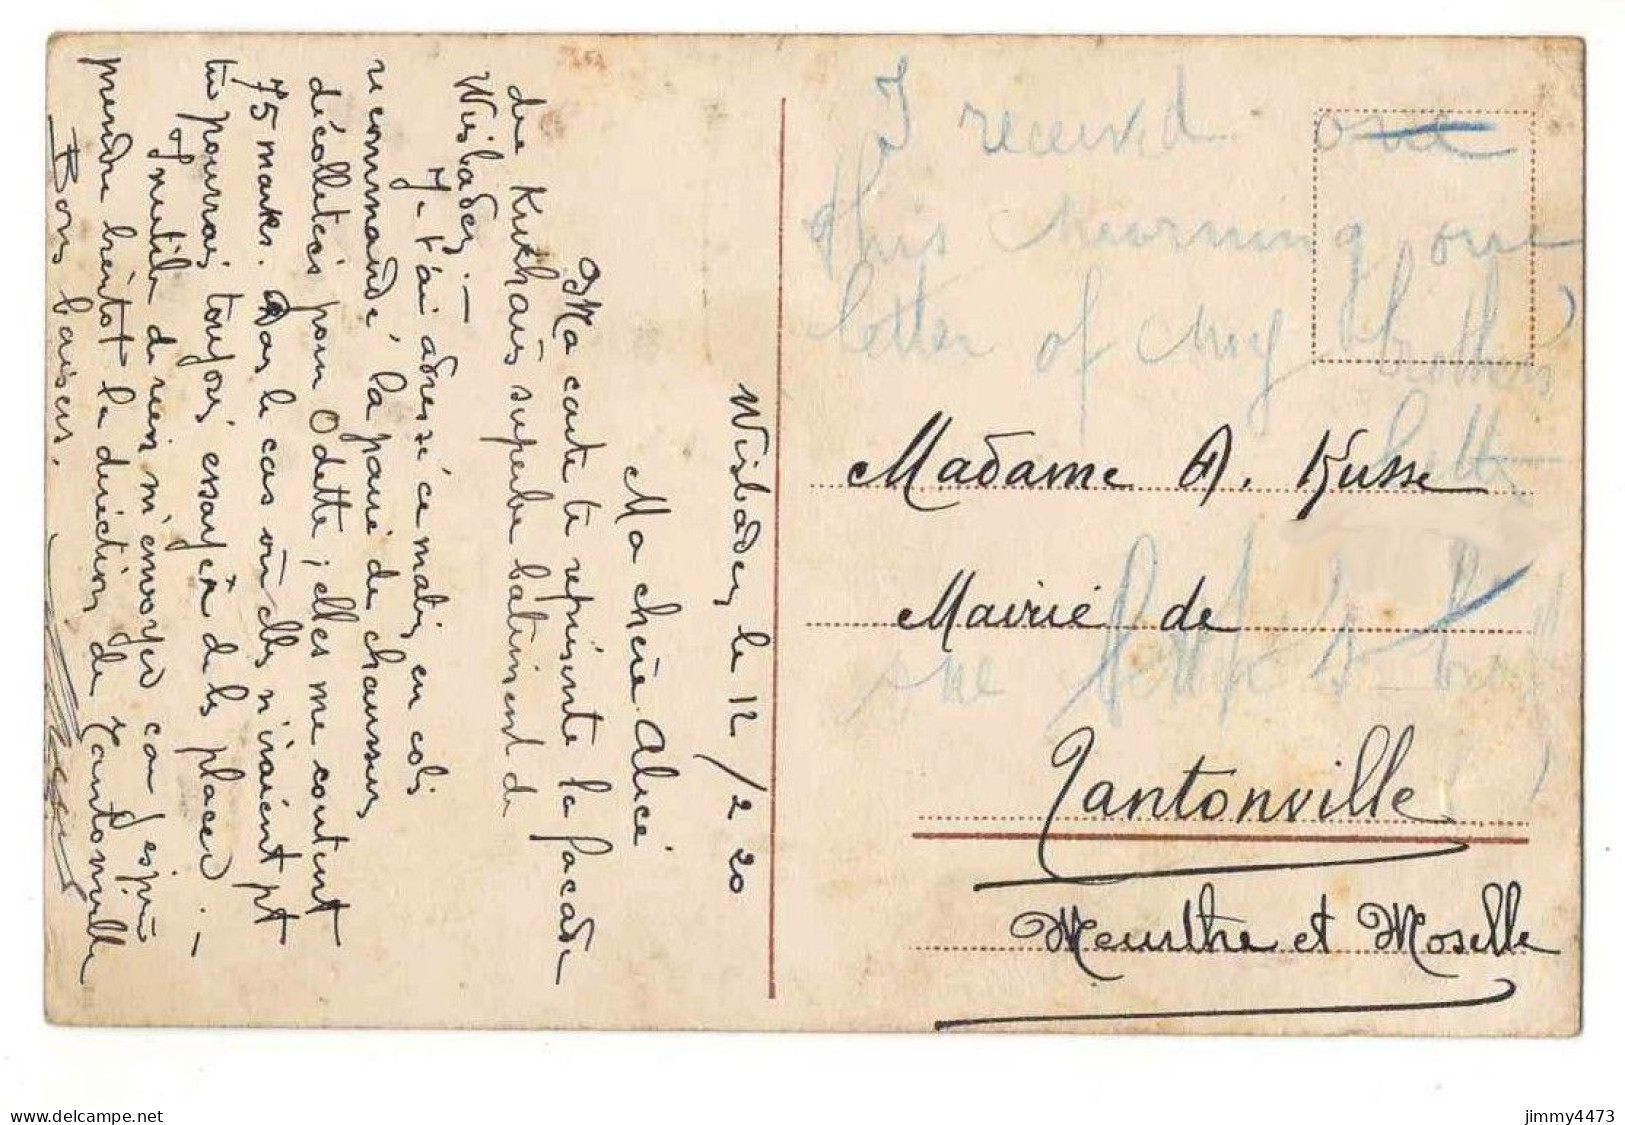 Wisbaden le 12/2 20
Ma chère Alice
Ma carte te représente la facade
du Kurhaus superbe batiment de
Wisbaden. —
Je t'ai adressé ce matin en colis
recommandé, la paire de chaussures
décolletées pour Odette, elles me coutent
75 marks. Dans le cas où elles n'iraient pt
tu pourrais toujours essayer de les placer. —
Inutile de rien m'envoyer car j'espère
prendre bientot la direction de Tantonville
Bons baisers.
I received one
this mourning one
letter of my brother
Madame A. Kusse
Mairie de
Tantonville
Meurthe et Moselle
jimmy4473
www.delcampe.net